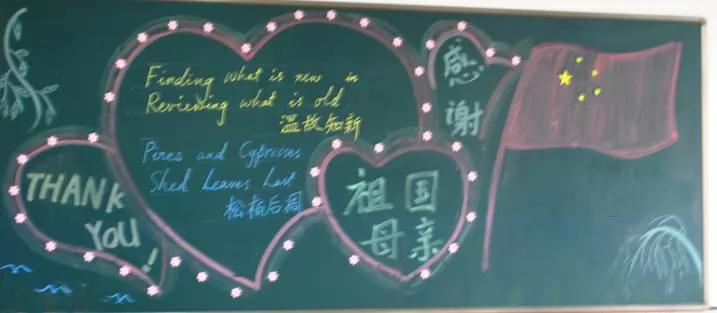 Finding what is new in
Reviewing what is old
温故知新
Pines and Cypresses
Shed Leaves Last
松柏后凋
THANK
YOU!
感
谢
祖国
母亲